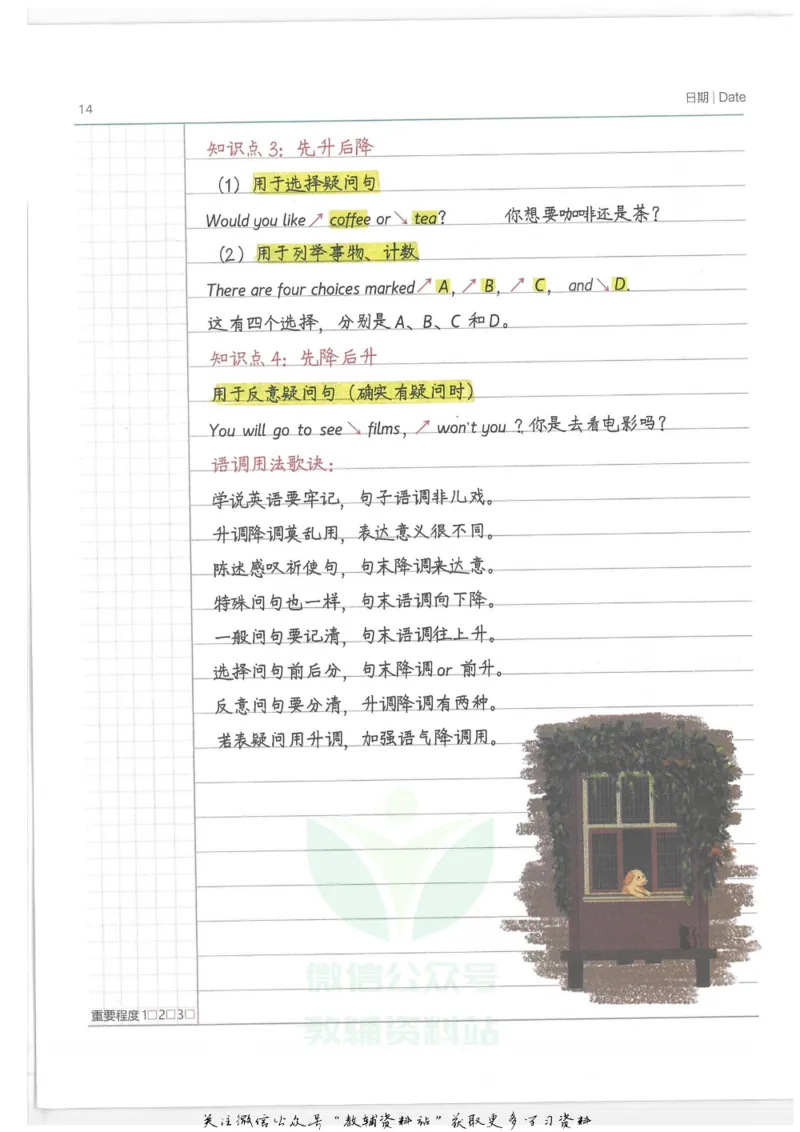 14
日期 | Date
知识点 3：先升后降
（1）用于选择疑问句
Would you like↗ coffee or↘ tea? 你想要咖啡还是茶？
（2）用于列举事物、计数
There are four choices marked↗ A,↗ B,↗ C, and↘ D.
这有四个选择，分别是 A、B、C 和 D。
知识点 4：先降后升
用于反意疑问句（确实有疑问时）
You will go to see↘ films,↗ won't you ? 你是去看电影吗？
语调用法歌诀：
学说英语要牢记，句子语调非儿戏。
升调降调莫乱用，表达意义很不同。
陈述感叹祈使句，句末降调来达意。
特殊问句也一样，句末语调向下降。
一般问句要记清，句末语调往上升。
选择问句前后分，句末降调 or 前升。
反意问句要分清，升调降调有两种。
若表疑问用升调，加强语气降调用。
微信公众号
教辅资料站
重要程度 1□2□3□
关注微信公众号“教辅资料站”获取更多学习资料